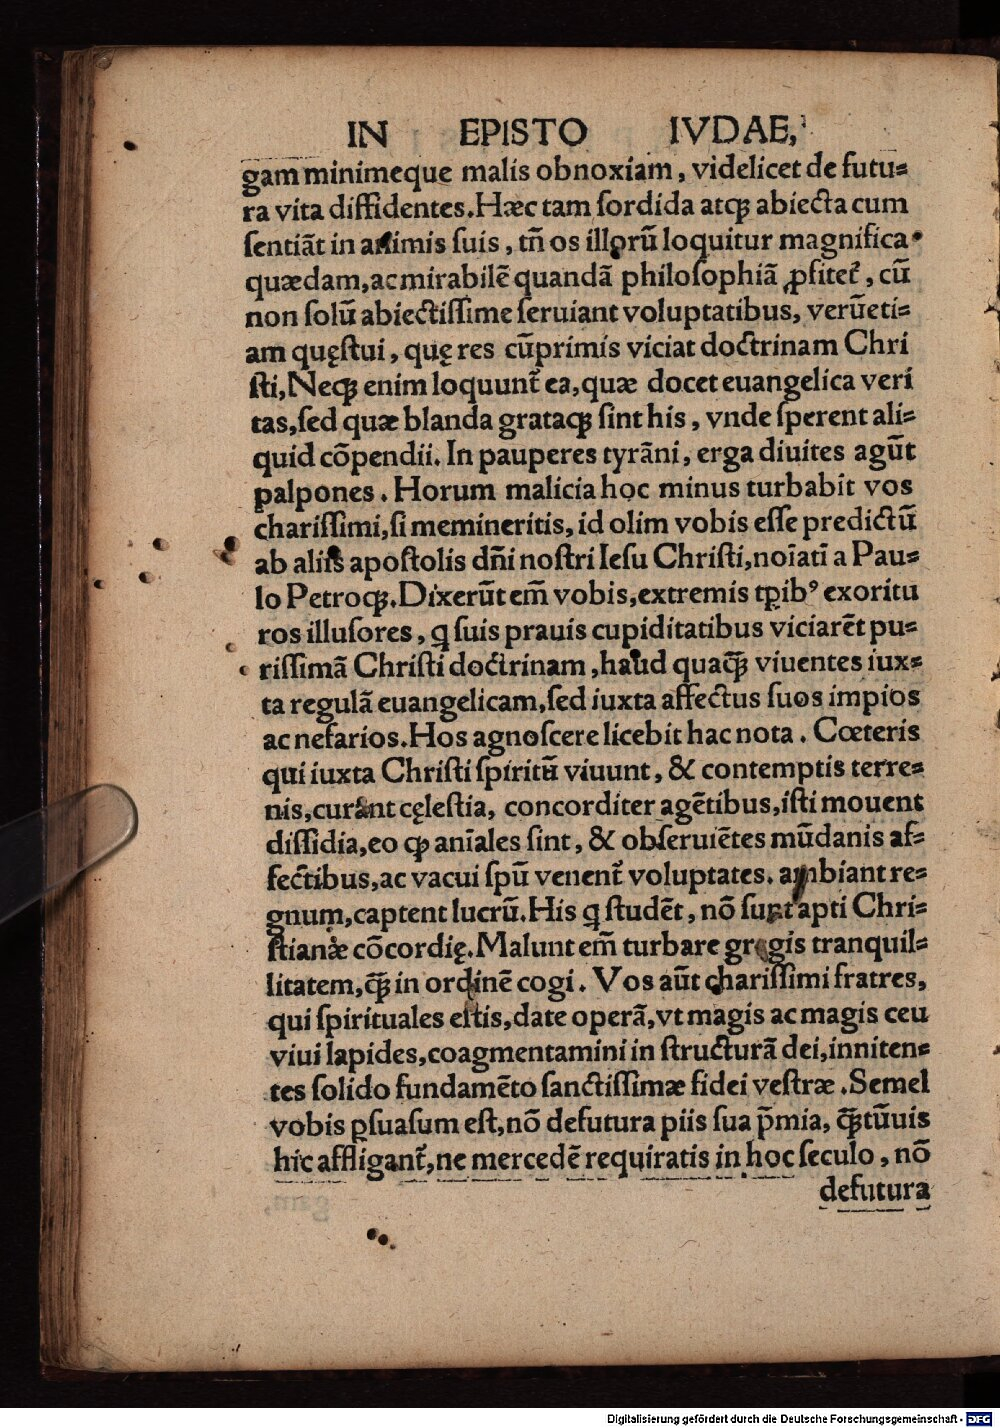 IN EPISTO IVDAE,
gam minimeque malis obnoxiam, videlicet de futu⸗
ra vita diffidentes. Hæc tam ſordida atqꝫ abiecta cum
ſentiāt in animis ſuis, tñ os illorū loquitur magnifica
quædam, ac mirabilē quandā philoſophiā ꝓfitet᷑, cū
non ſolū abiectiſſime ſeruiant voluptatibus, verūeti⸗
am quęſtui, quę res cūprimis viciat doctrinam Chri
ſti, Neqꝫ enim loquunt᷑ ea, quæ docet euangelica veri
tas, ſed quæ blanda grataqꝫ ſint his, vnde ſperent ali⸗
quid cōpendii. In pauperes tyrāni, erga diuites agūt
palpones. Horum malicia hoc minus turbabit vos
chariſſimi, ſi memineritis, id olim vobis eſſe predictū
ab aliis apoſtolis dñi noſtri Ieſu Chriſti, noīatī a Pau⸗
lo Petroqꝫ. Dixerūt em̄ vobis, extremis tꝑibꝰ exoritu
ros illuſores, q ſuis prauis cupiditatibus viciarēt pu⸗
riſſimā Chriſti doctrinam, haud quaqꝫ̄ viuentes iux⸗
ta regulā euangelicam, ſed iuxta affectus ſuos impios
ac nefarios. Hos agnoſcere licebit hac nota. Cœteris
qui iuxta Chriſti ſpiritū viuunt, & contemptis terre⸗
nis, curant cęleſtia, concorditer agētibus, iſti mouent
diſſidia, eo qꝫ aniāles ſint, & obſeruiētes mūdanis af⸗
fectibus, ac vacui ſpū venent᷑ voluptates. ambiant re⸗
gnum, captent lucrū. His q ſtudēt, nō ſunt apti Chri⸗
ſtianæ cōcordię. Malunt em̄ turbare gregis tranquil⸗
litatem, qꝫ̄ in ordinē cogi. Vos aūt chariſſimi fratres,
qui ſpirituales eſtis, date operā, vt magis ac magis ceu
viui lapides, coagmentamini in ſtructurā dei, inniten⸗
tes ſolido fundamēto ſanctiſſimæ fidei veſtræ. Semel
vobis ꝑſuaſum eſt, nō defutura piis ſua p̄mia, qꝫ̄tūuis
hic affligant᷑, ne mercedē requiratis in hoc ſeculo, nō
defutura
Digitalisierung gefördert durch die Deutsche Forschungsgemeinschaft - DFG